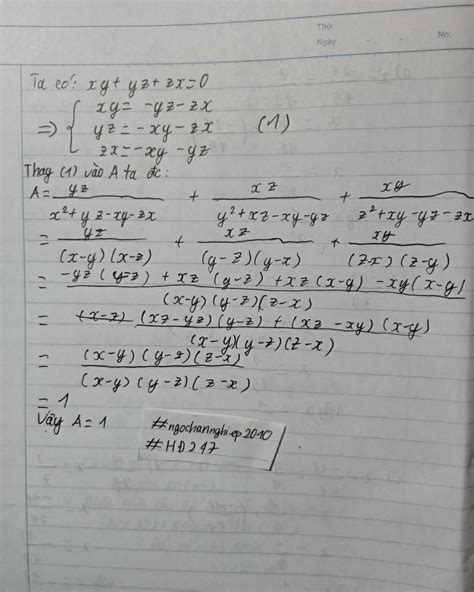 Thứ
Ngày
No.
Ta có: xy + yz + zx = 0
⇒ { xy = -yz - zx
yz = -xy - zx (1)
zx = -xy - yz
Thay (1) vào A ta đc:
A = yz/(x²+yz-xy-zx) + xz/(y²+xz-xy-yz) + xy/(z²+xy-yz-zx)
= yz/((x-y)(x-z)) + xz/((y-z)(y-x)) + xy/((z-x)(z-y))
= (-yz(y-z) + xz(y-z) + xz(x-y) - xy(x-y))/((x-y)(y-z)(z-x))
= ((xz-yz)(y-z) + (xz-xy)(x-y))/((x-y)(y-z)(z-x))
= ((x-y)(y-z)(z-x))/((x-y)(y-z)(z-x))
= 1
Vậy A = 1
#ngochannghiep2010
#HĐ247